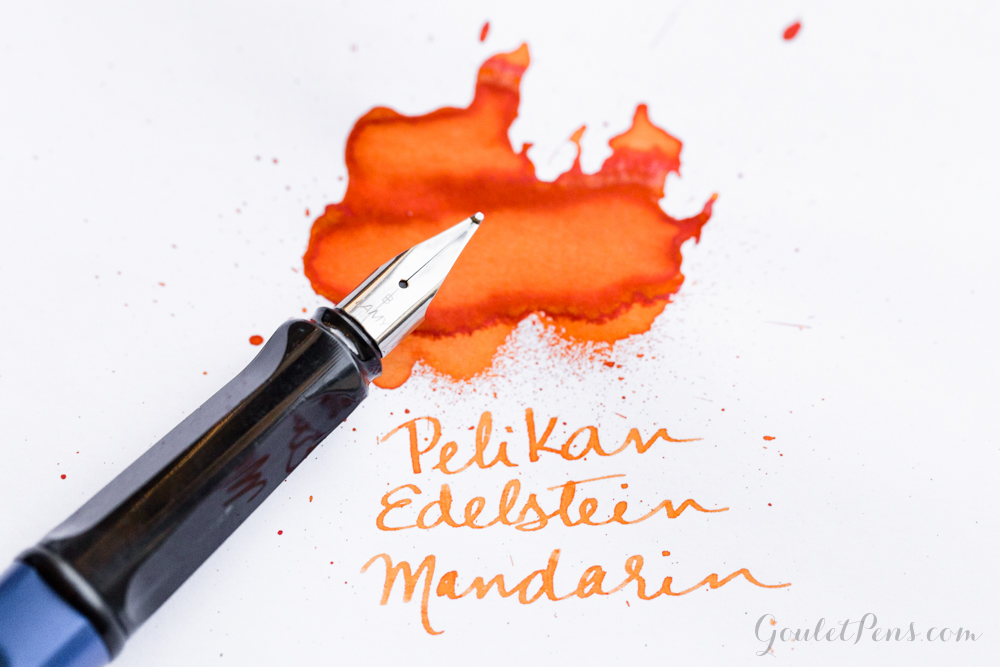 Pelikan
Edelstein
Mandarin
GouletPens.com